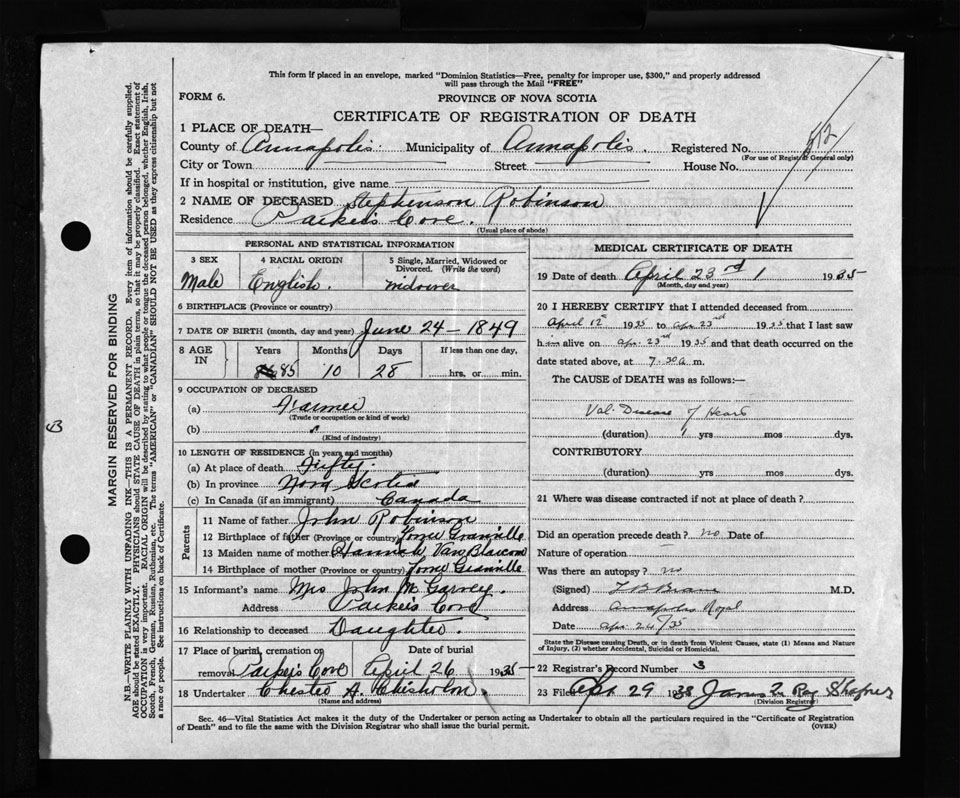 This form if placed in an envelope, marked "Dominion Statistics—Free, penalty for improper use, $300," and properly addressed
will pass through the Mail "FREE"
FORM 6.
PROVINCE OF NOVA SCOTIA
CERTIFICATE OF REGISTRATION OF DEATH
1 PLACE OF DEATH—
County of Annapolis. Municipality of Annapolis. Registered No.
(For use of Registrar General only)
City or Town Street House No.
If in hospital or institution, give name
2 NAME OF DECEASED Stephenson Robinson
Residence Parker's Cove.
(Usual place of abode)
PERSONAL AND STATISTICAL INFORMATION
3 SEX 4 RACIAL ORIGIN 5 Single, Married, Widowed or
Divorced. (Write the word)
Male English. widower
6 BIRTHPLACE (Province or country)
7 DATE OF BIRTH (month, day and year) June 24 - 1849
8 AGE IN Years Months Days If less than one day,
85 10 28 hrs. or min.
9 OCCUPATION OF DECEASED
(a) Farmer
(Trade or occupation or kind of work)
(b)
(Kind of industry)
10 LENGTH OF RESIDENCE (in years and months)
(a) At place of death Fifty.
(b) In province Nova Scotia
(c) In Canada (if an immigrant) Canada
Parents
11 Name of father John Robinson
12 Birthplace of father (Province or country) Granville
13 Maiden name of mother Hannah Van Blaircom
14 Birthplace of mother (Province or country) Granville
15 Informant's name Mrs John McGarvey.
Address Parker's Cove
16 Relationship to deceased Daughter.
17 Place of burial, cremation or Date of burial
removal Parker's Cove April 26 1935
18 Undertaker Chester A. Chisholm.
(Name and address)
MEDICAL CERTIFICATE OF DEATH
19 Date of death April 23rd 1935
(Month, day and year)
20 I HEREBY CERTIFY that I attended deceased from
April 12th 1935 to Apr. 23rd 1935 that I last saw
h alive on Apr. 23rd 1935 and that death occurred on the
date stated above, at 7.30 a. m.
The CAUSE of DEATH was as follows:—
Val. Disease of Heart
(duration) yrs mos dys.
CONTRIBUTORY
(duration) yrs mos dys.
21 Where was disease contracted if not at place of death?
Did an operation precede death? no Date of
Nature of operation
Was there an autopsy? no
(Signed) M.D.
Address Annapolis Royal
Date Apr. 24/35
State the Disease causing Death, or in death from Violent Causes, state (1) Means and Nature
of Injury, (2) whether Accidental, Suicidal or Homicidal.
22 Registrar's Record Number 3
23 Filed Apr. 29 1935 Shafner
(Division Registrar)
Sec. 46—Vital Statistics Act makes it the duty of the Undertaker or person acting as Undertaker to obtain all the particulars required in the "Certificate of Registration
of Death" and to file the same with the Division Registrar who shall issue the burial permit. (OVER)
MARGIN RESERVED FOR BINDING
N.B.—WRITE PLAINLY WITH UNFADING INK—THIS IS A PERMANENT RECORD. Every item of information should be carefully supplied.
AGE should be stated EXACTLY. PHYSICIANS should STATE CAUSE OF DEATH in plain terms, so that it may be properly classified. Exact statement of
OCCUPATION is very important. RACIAL ORIGIN will be described by stating to what people or tongue the deceased person belonged, whether English, Irish,
Scotch, French, German, Russian, Ruthenian, etc. The terms "AMERICAN" or "CANADIAN" SHOULD NOT BE USED as they express citizenship but not
a race or people. See instructions on back of Certificate.